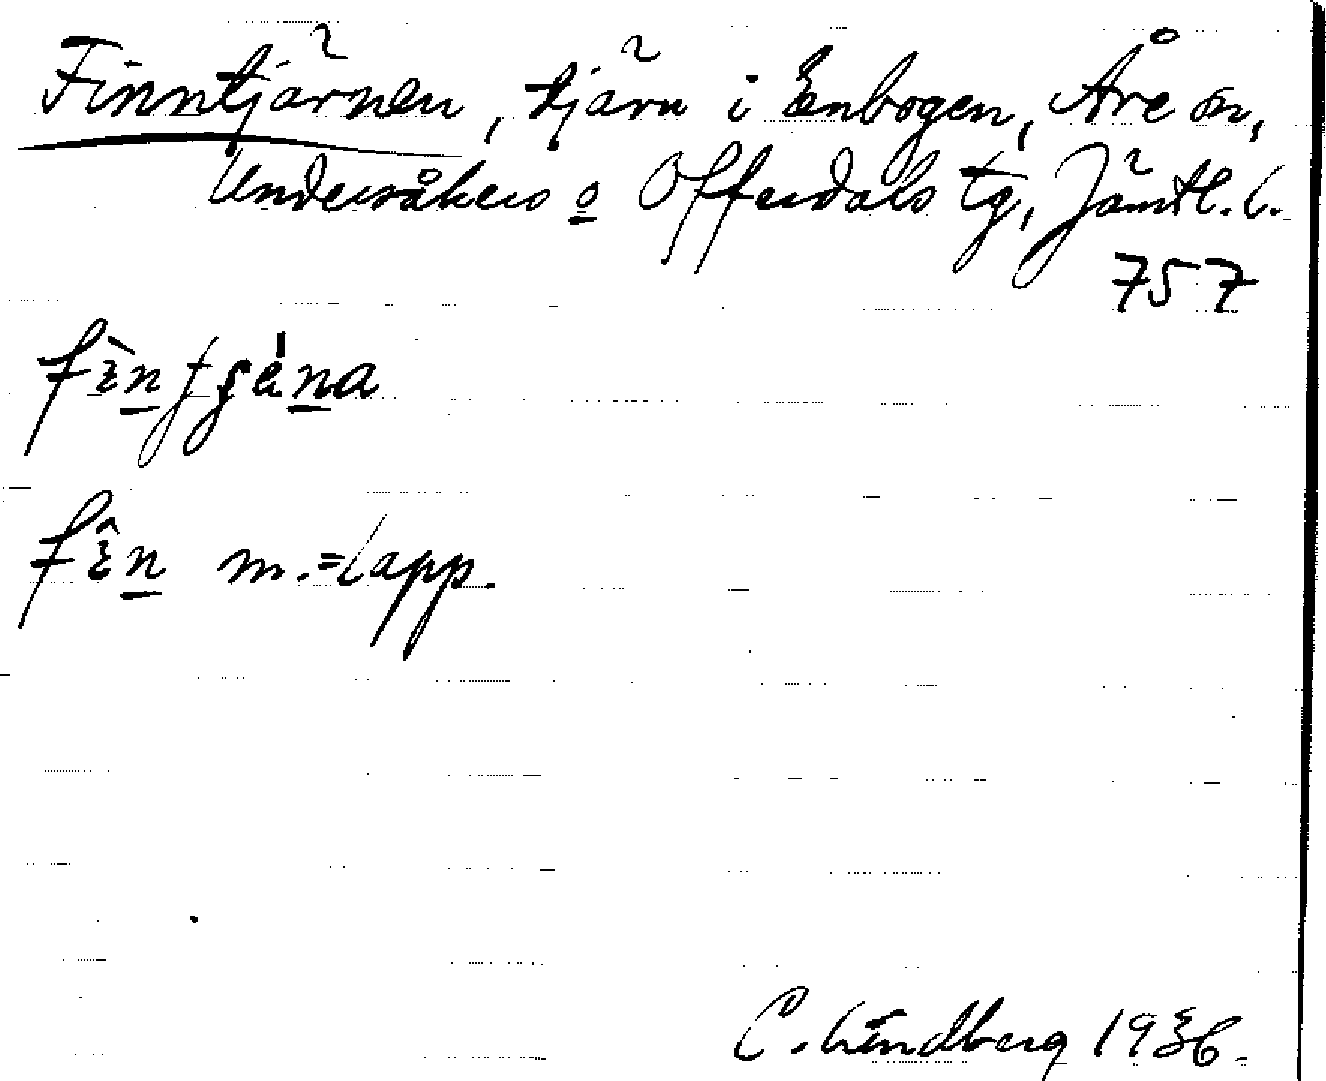 Finntjärnen, tjärn i Enbogen, Åre sn,
Undersåkers o Offerdals tg, Jämtl. l.
757
m. = lapp.
C. Lindberg 1936.